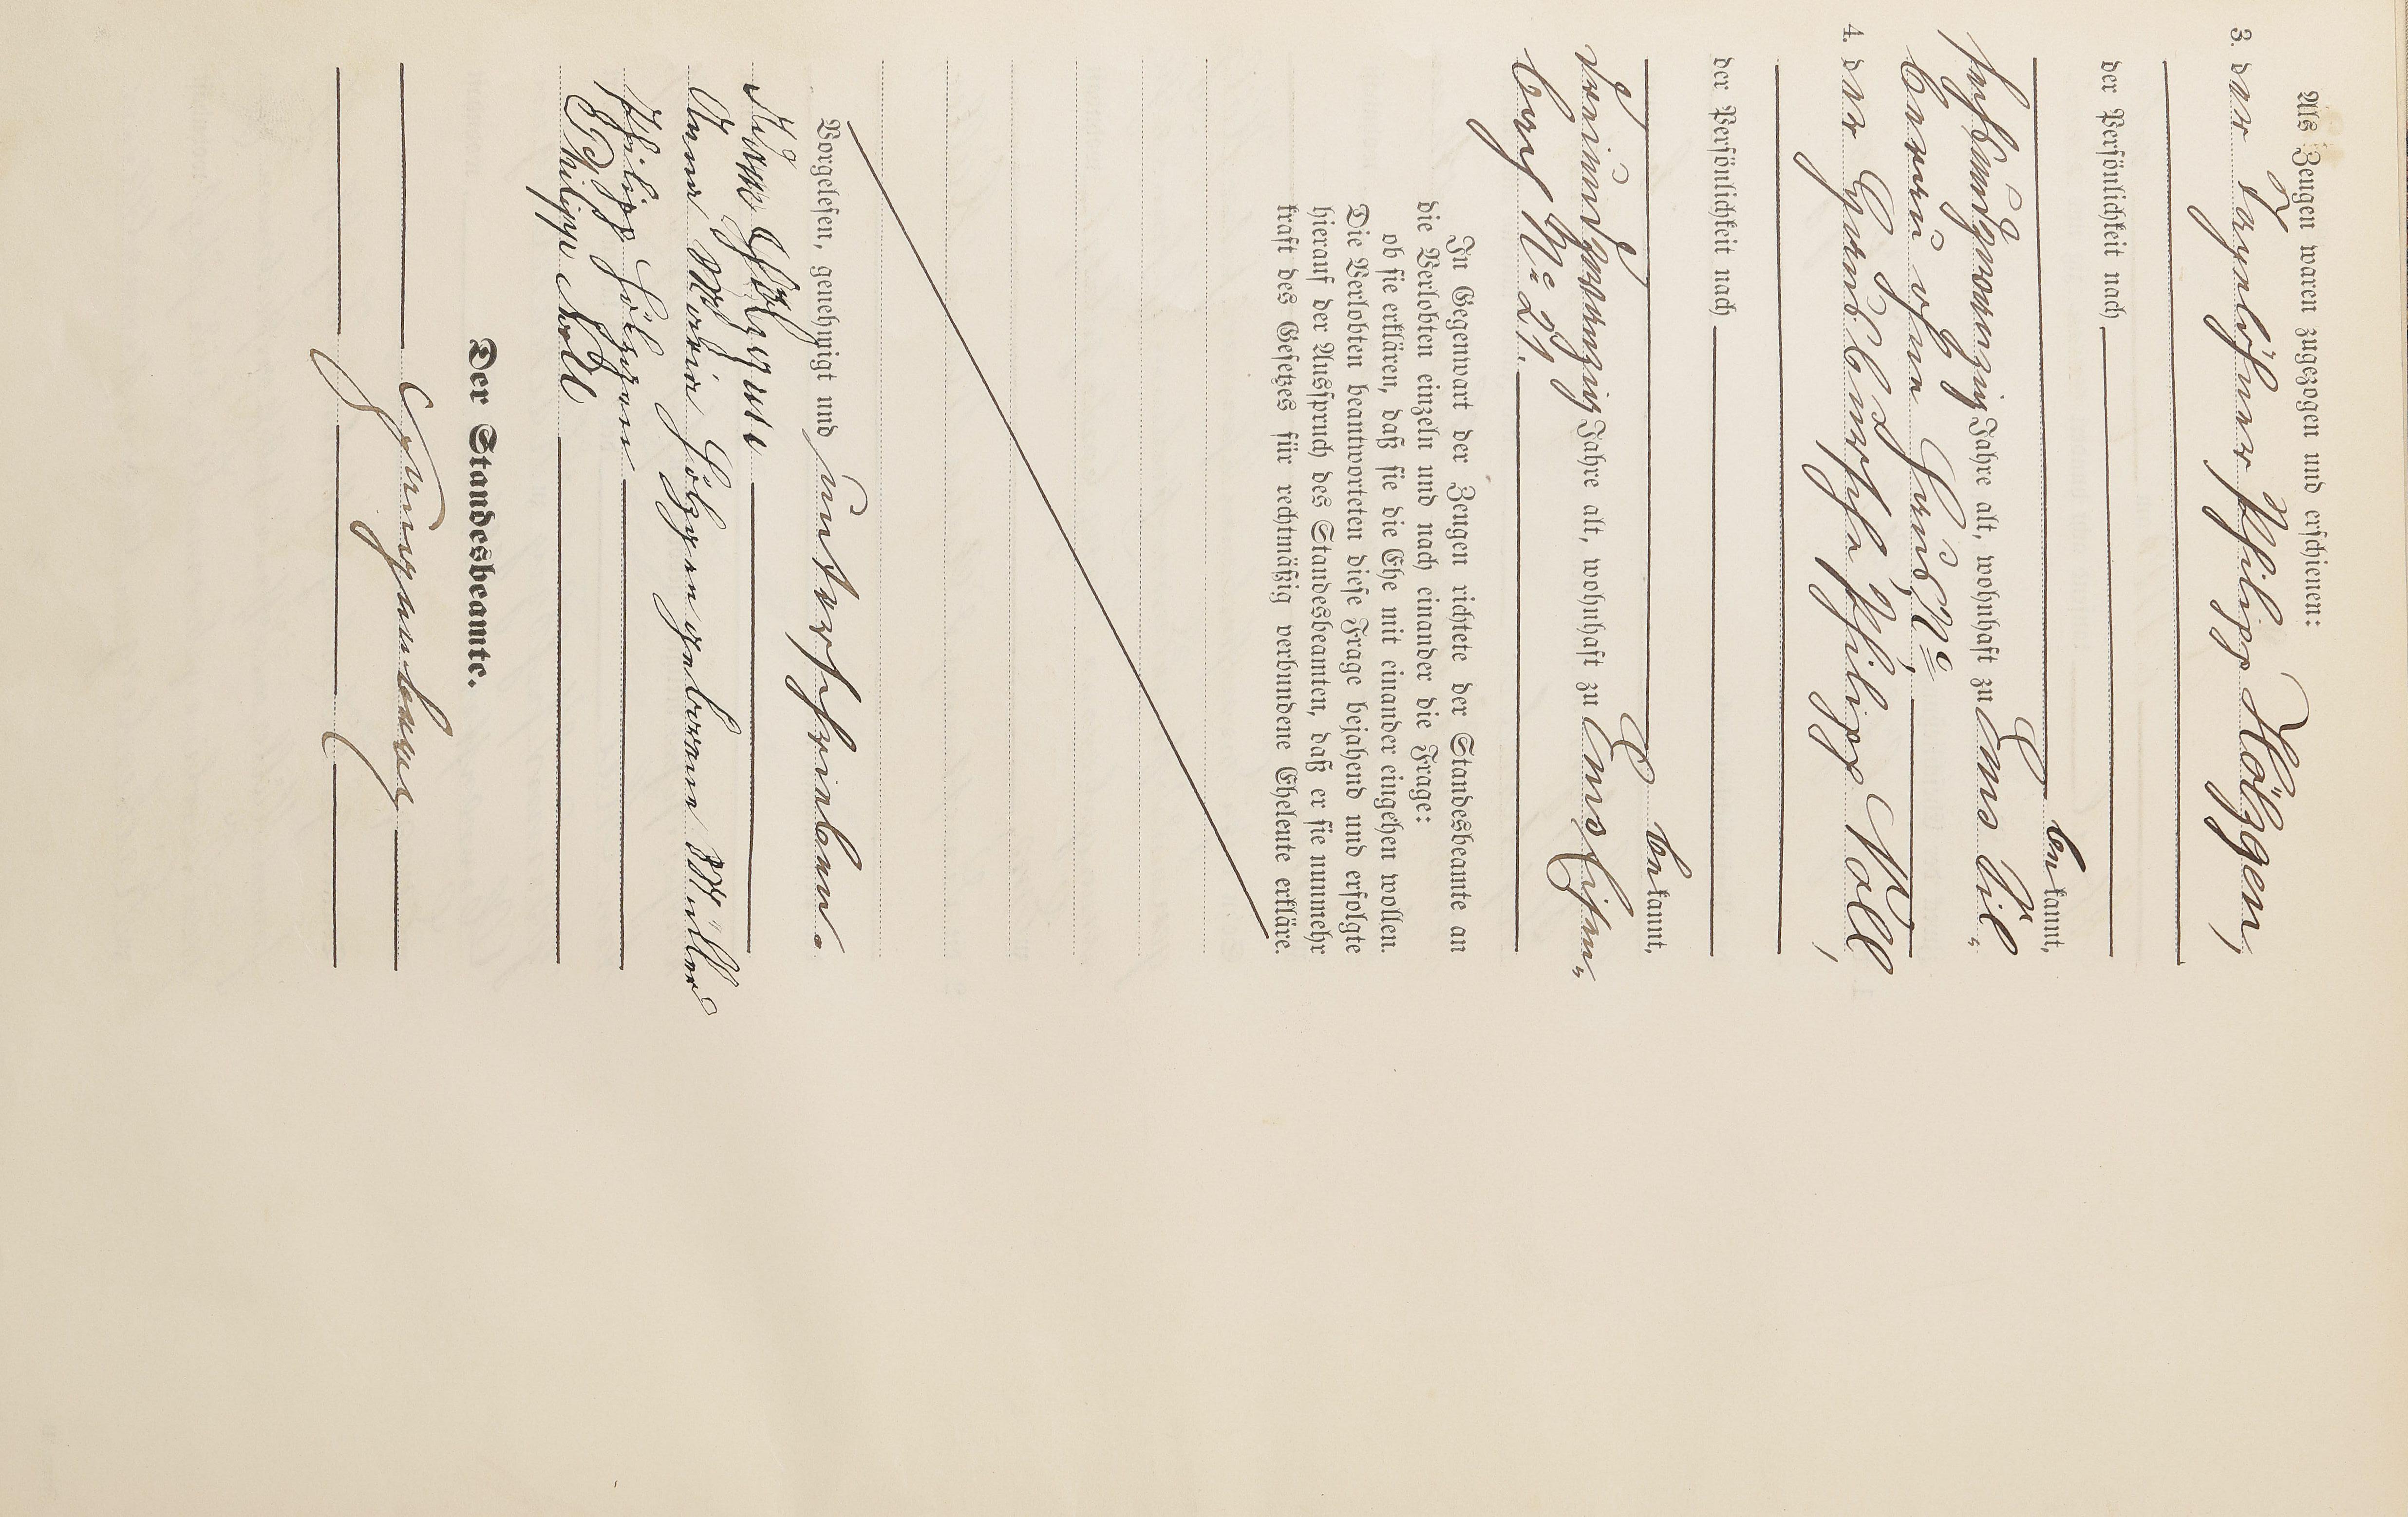 Als Zeugen waren zugezogen und erschienen:
3. der Tagelöhner Philipp Hölzgen,
der Persönlichkeit nach
bekannt,
sechsundzwanzig Jahre alt, wohnhaft zu Ems Vil„
benau ohne Haus N°
4. der Hausbursche Philipp Noll,
der Persönlichkeit nach
bekannt,
dreiundzwanzig Jahre alt, wohnhaft zu Ems
N° 21.
In Gegenwart der Zeugen richtete der Standesbeamte an
die Verlobten einzeln und nach einander die Frage:
ob sie erklären, daß sie die Ehe mit einander eingehen wollen.
Die Verlobten beantworteten diese Frage bejahend und erfolgte
hierauf der Ausspruch des Standesbeamten, daß er sie nunmehr
kraft des Gesetzes für rechtmäßig verbundene Eheleute erkläre.
Vorgelesen, genehmigt und unterschrieben.
Hölzgen
Anna Maria Hölzgen geborene Müller
Philipp Hölzgen
Philipp Noll
Der Standesbeamte.